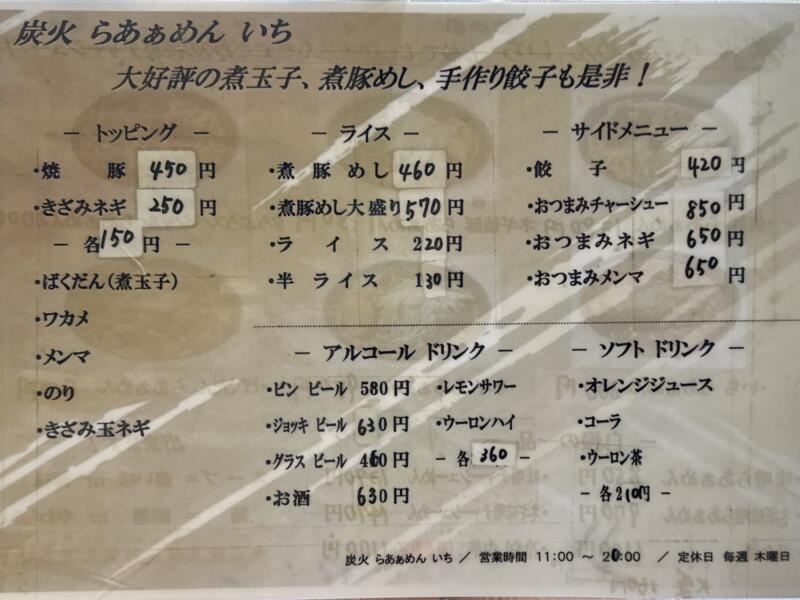 炭火 らあぁめん いち
大好評の煮玉子、煮豚めし、手作り餃子も是非！
－ トッピング －
・焼 豚 450 円
・きざみネギ 250 円
－ 各150 円 －
・ばくだん(煮玉子)
・ワカメ
・メンマ
・のり
・きざみ玉ネギ
－ ライス －
・煮豚めし 460 円
・煮豚めし大盛り 570 円
・ライス 220 円
・半ライス 130 円
－ サイドメニュー －
・餃 子 420 円
・おつまみチャーシュー 850 円
・おつまみネギ 650 円
・おつまみメンマ 650 円
－ アルコール ドリンク －
・ビン ビール 580 円
・ジョッキ ビール 630 円
・グラス ビール 460 円
・お酒 630 円
・レモンサワー
・ウーロンハイ
－ 各 360 －
－ ソフト ドリンク －
・オレンジジュース
・コーラ
・ウーロン茶
－ 各210円 －
炭火 らあぁめん いち ／ 営業時間 11:00 ～ 20:00 ／ 定休日 毎週 木曜日